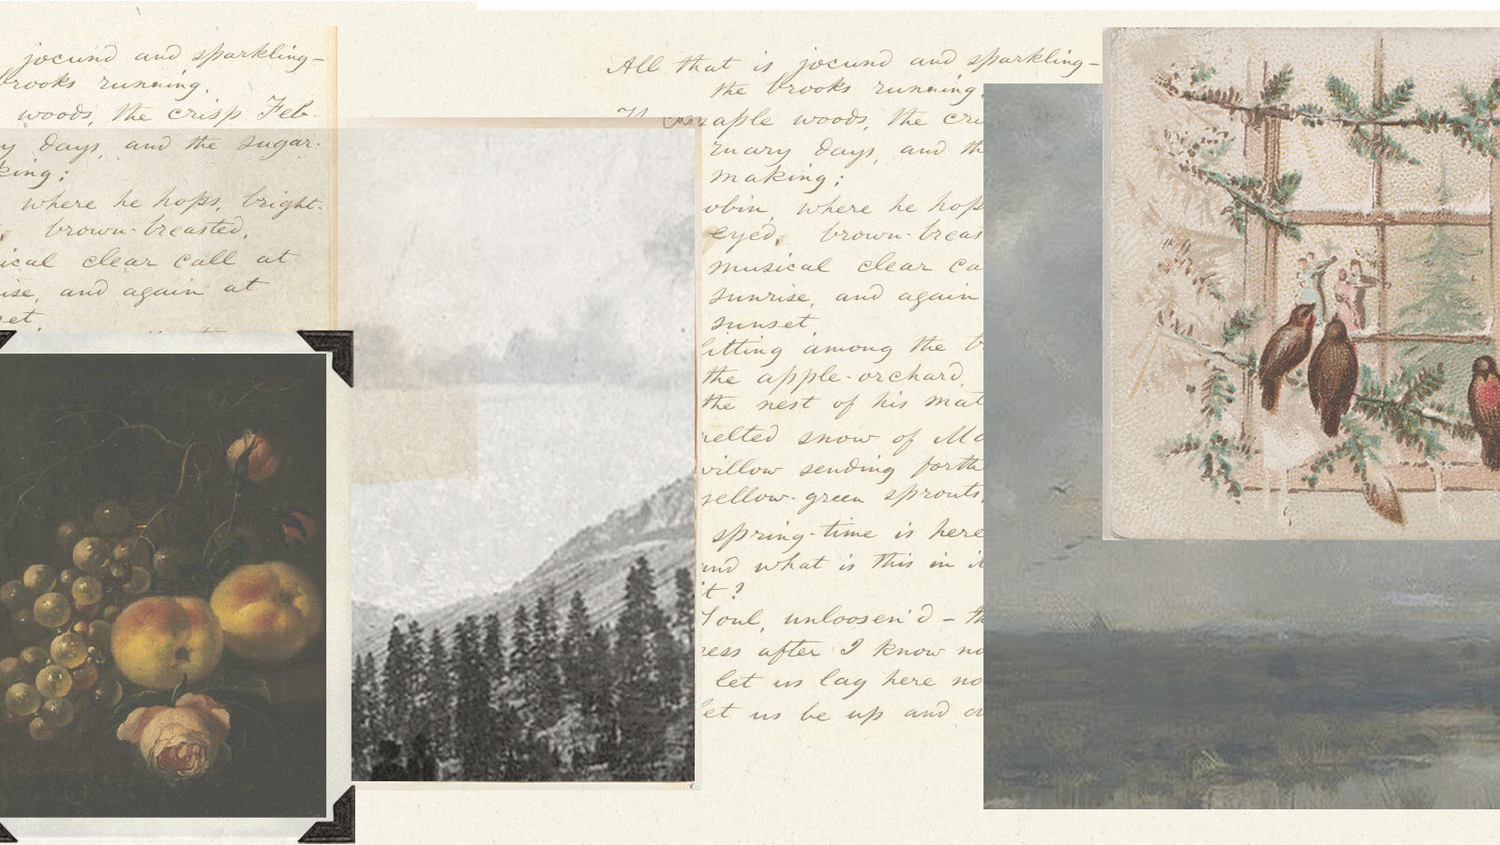 jocund and sparkling-
brooks running,
woods, the crisp Feb-
days, and the sugar-
king;
where he hops, bright-
brown-breasted,
ical clear call at
ise, and again at
set,
All that is jocund and sparkling-
the brooks running,
maple woods, the cri
ruary days, and th
making;
obin, where he hop
eyed, brown-breas
musical clear ca
sunrise, and again
sunset,
litting among the b
the apple-orchard,
the nest of his mat
melted snow of Ma
willow sending forth
yellow-green sprouts,
spring-time is here
and what is this in i
it?
Soul, unloosen'd – th
ness after I know no
let us lag here no
let us be up and a